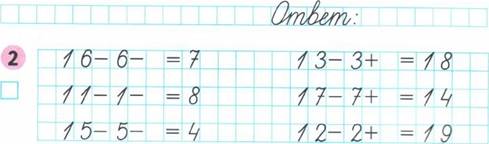 Ответ:
2 16-6- =7 13-3+ =18
11-1- =8 17-7+ =14
15-5- =4 12-2+ =19